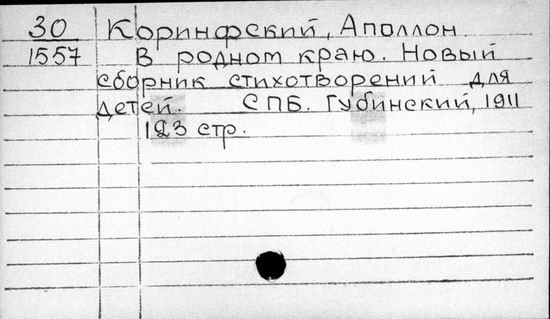 30 Коринфский, Аполлон.
1557 В родном краю. Новый
сборник стихотворений для
детей. СПБ. Губинский, 1911
123 стр.